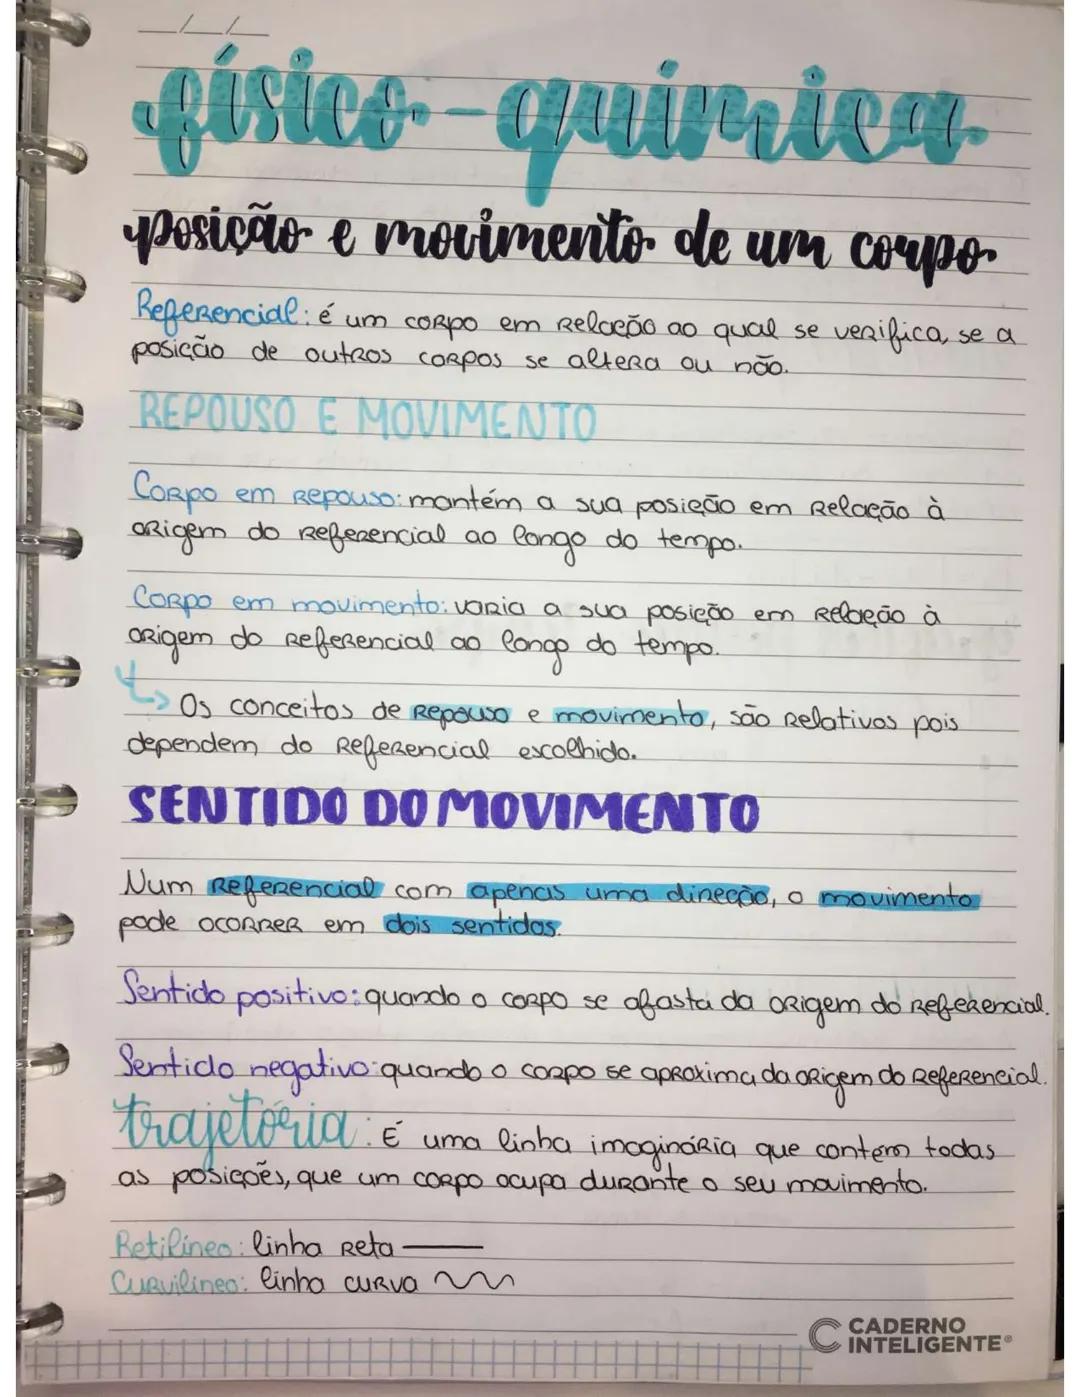 __/__/__
físico-química
posição e movimento de um corpo
Referencial: é um corpo em relação ao qual se verifica, se a
posição de outros corpos se altera ou não.
REPOUSO E MOVIMENTO
Corpo em repouso: mantém a sua posição em relação à
origem do referencial ao longo do tempo.
Corpo em movimento: varia a sua posição em relação à
origem do referencial ao longo do tempo.
↳ Os conceitos de repouso e movimento, são relativos pois
dependem do referencial escolhido.
SENTIDO DO MOVIMENTO
Num referencial com apenas uma direção, o movimento
pode ocorrer em dois sentidos.
Sentido positivo: quando o corpo se afasta da origem do referencial.
Sentido negativo: quando o corpo se aproxima da origem do referencial.
trajetória: É uma linha imaginária que contem todas
as posições, que um corpo ocupa durante o seu movimento.
Retilíneo: linha reta
Curvilíneo: linha curva
CADERNO
INTELIGENTE®